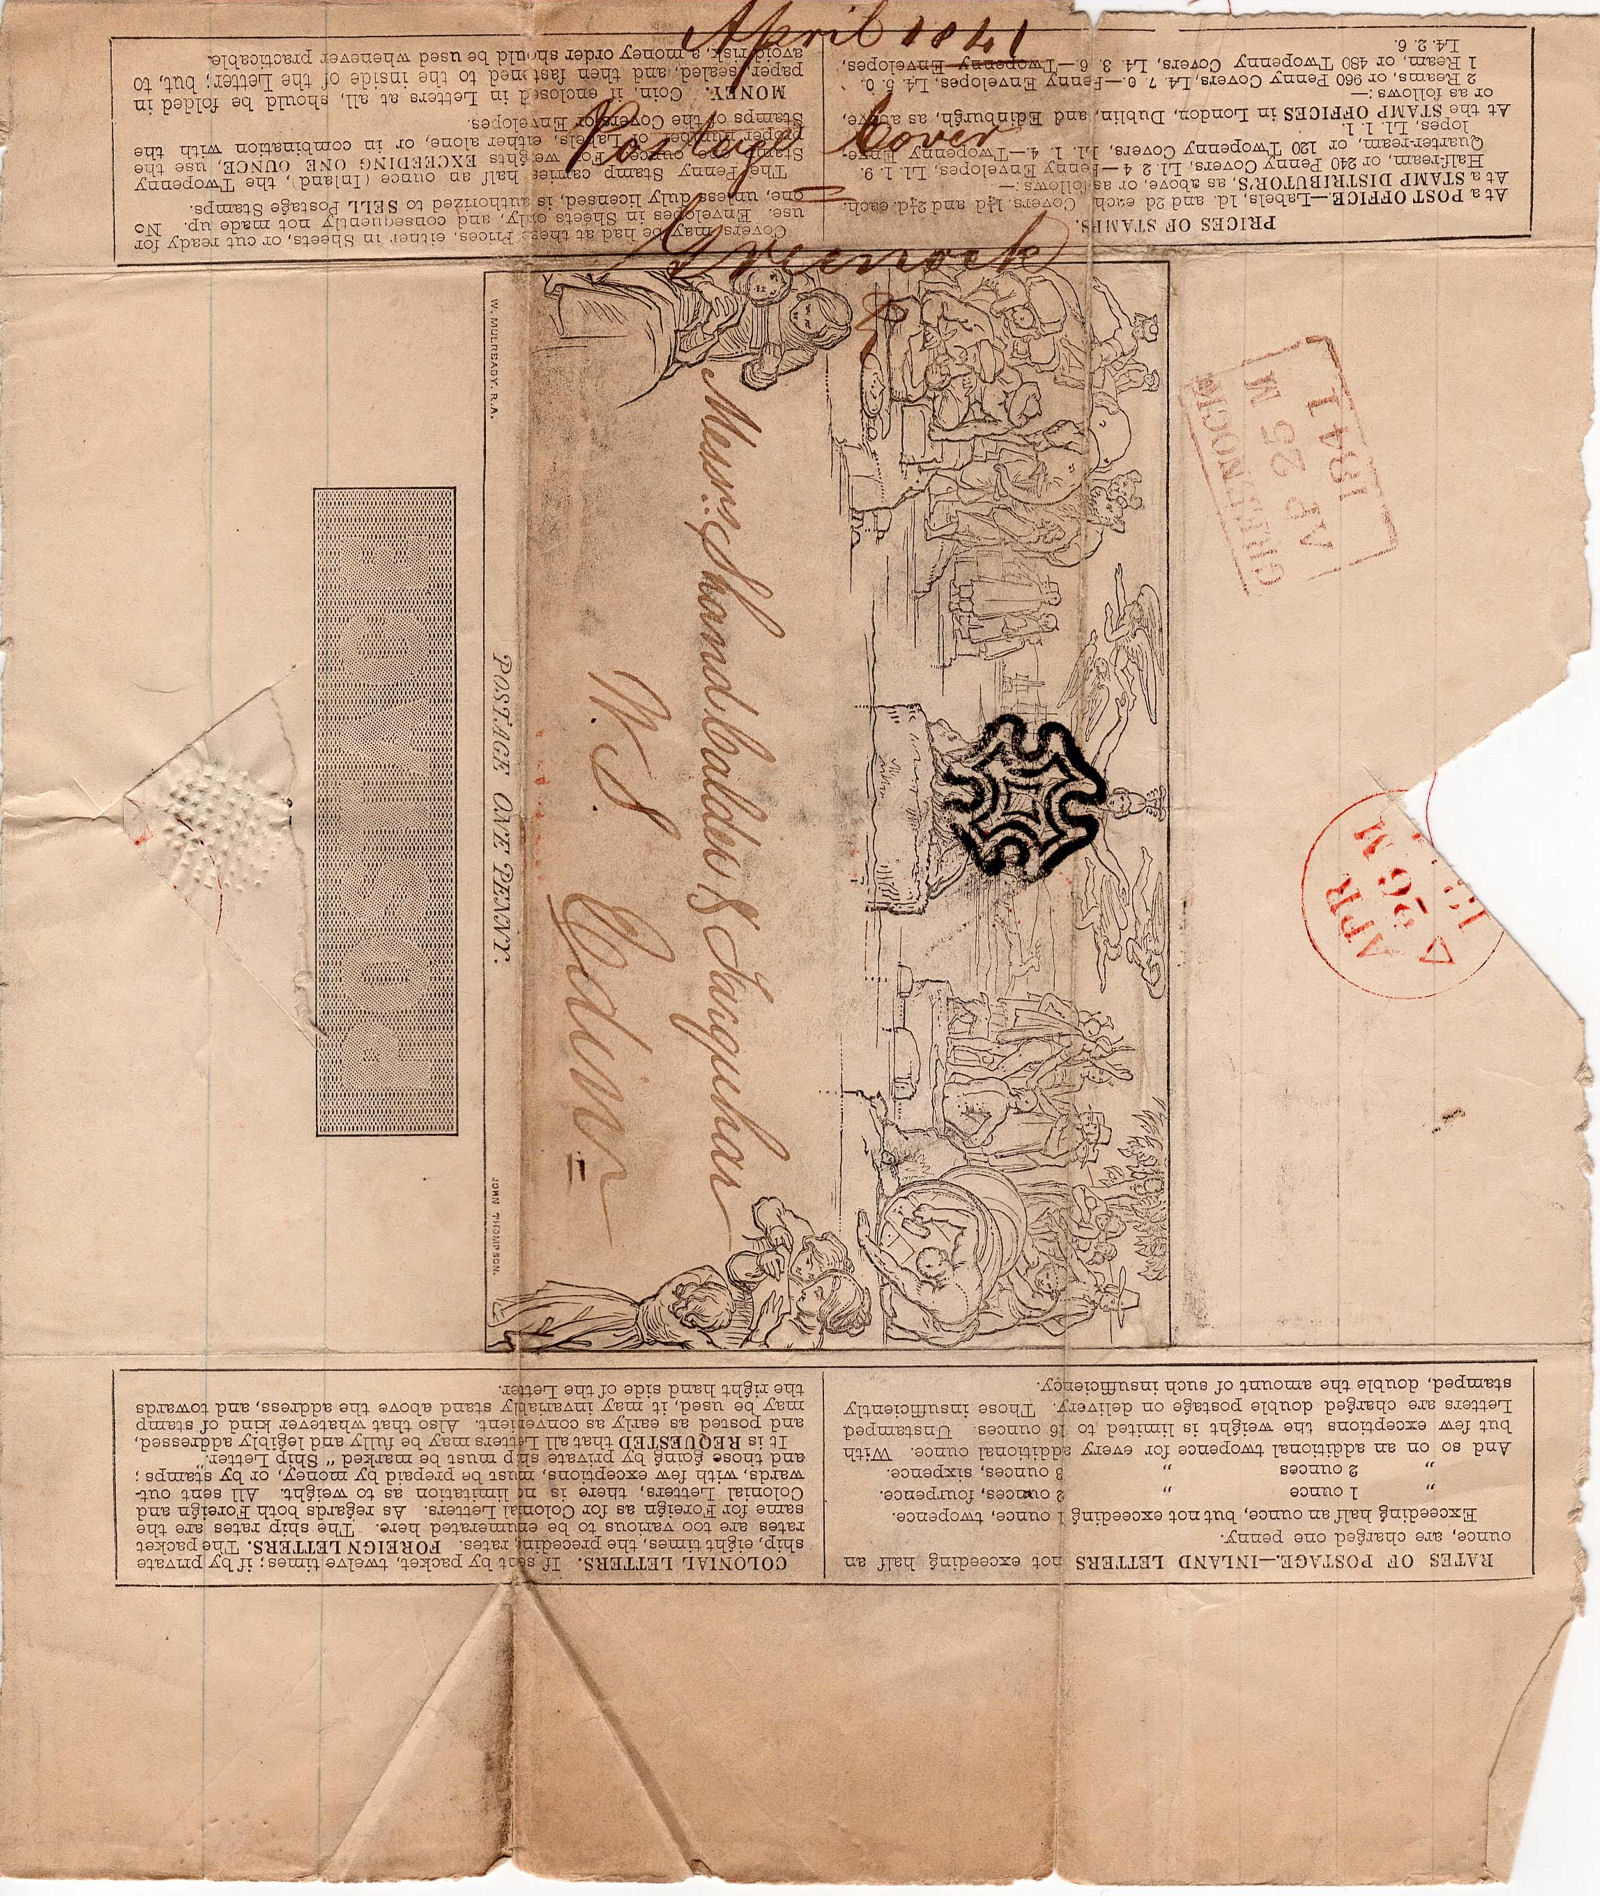 April 1841
Postage Cover
Greenock
PRICES OF STAMPS.
At a POST OFFICE.—Labels, 1d. and 2d. each. Covers, 1¼d. and 2¼d. each.
At a STAMP DISTRIBUTOR'S, as above, or as follows:—
Half-ream, or 240 Penny Covers, L1. 2 4—Penny Envelopes, L1. 1. 9.
Quarter-ream, or 120 Twopenny Covers, L1. 1. 4.—Twopenny Enve-
lopes, L1. 1. 1.
At the STAMP OFFICES in London, Dublin, and Edinburgh, as above,
or as follows:—
2 Reams, or 960 Penny Covers, L4. 7. 0.—Penny Envelopes, L4. 5. 0.
1 Ream, or 480 Twopenny Covers, L4. 3. 6.—Twopenny Envelopes,
L4. 2. 6.
Covers may be had at these Prices, either in Sheets, or cut ready for
use. Envelopes in Sheets only, and consequently not made up. No
one, unless duly licensed, is authorized to SELL Postage Stamps.
The Penny Stamp carries half an ounce (Inland), the Twopenny
Stamp one ounce. For weights EXCEEDING ONE OUNCE, use the
proper number of Labels, either alone, or in combination with the
Stamps of the Covers or Envelopes.
MONEY. Coin, if enclosed in Letters at all, should be folded in
paper, sealed, and then fastened to the inside of the Letter; but, to
avoid risk, a money order should be used whenever practicable.
GREENOCK
AP 25 M
1841
APR
26 M
Messrs. Shand, Calder & Farquhar
W. S.
Edinr
W. MULREADY, R.A.
POSTAGE ONE PENNY.
JOHN THOMPSON.
POSTAGE
RATES OF POSTAGE.—INLAND LETTERS not exceeding half an
ounce, are charged one penny.
Exceeding half an ounce, but not exceeding 1 ounce, twopence.
„ 1 ounce „ 2 ounces, fourpence.
„ 2 ounces „ 3 ounces, sixpence.
And so on an additional twopence for every additional ounce. With
but few exceptions the weight is limited to 16 ounces. Unstamped
Letters are charged double postage on delivery. Those insufficiently
stamped, double the amount of such insufficiency.
COLONIAL LETTERS. If sent by packet, twelve times; if by private
ship, eight times, the preceding rates. FOREIGN LETTERS. The packet
rates are too various to be enumerated here. The ship rates are the
same for Foreign as for Colonial Letters. As regards both Foreign and
Colonial Letters, there is no limitation as to weight. All sent out-
wards, with few exceptions, must be prepaid by money, or by stamps;
and those going by private ship must be marked "Ship Letter."
It is REQUESTED that all Letters may be fully and legibly addressed,
and posted as early as convenient. Also that whatever kind of stamp
may be used, it may invariably stand above the address, and towards
the right hand side of the Letter.